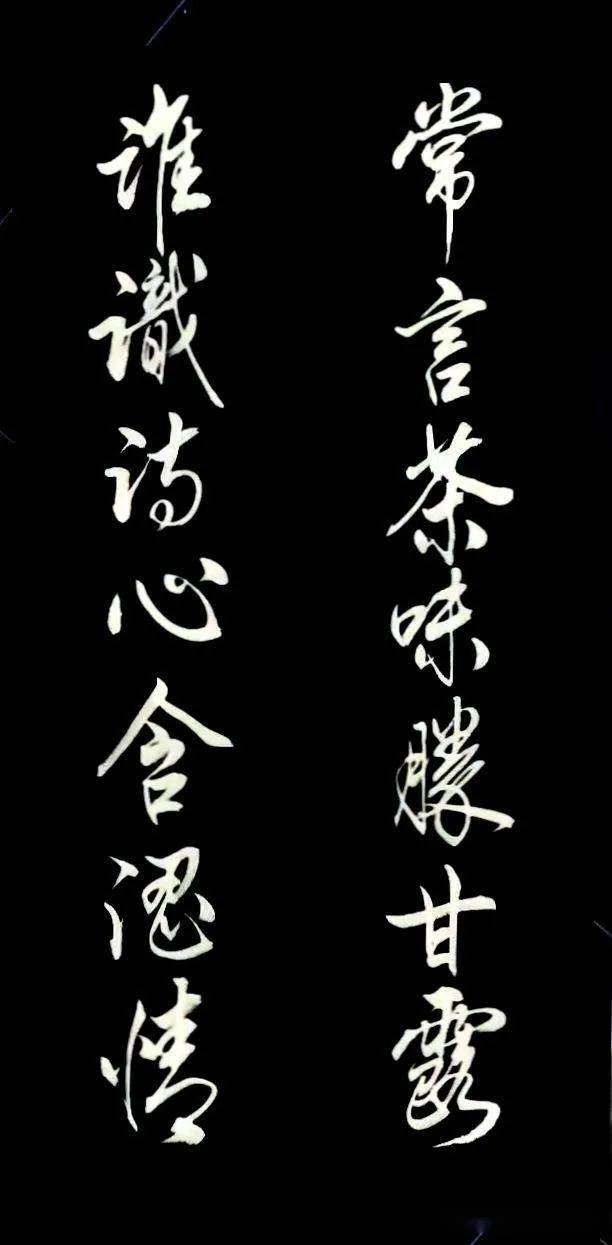 常言茶味勝甘露
誰識詩心含溫情